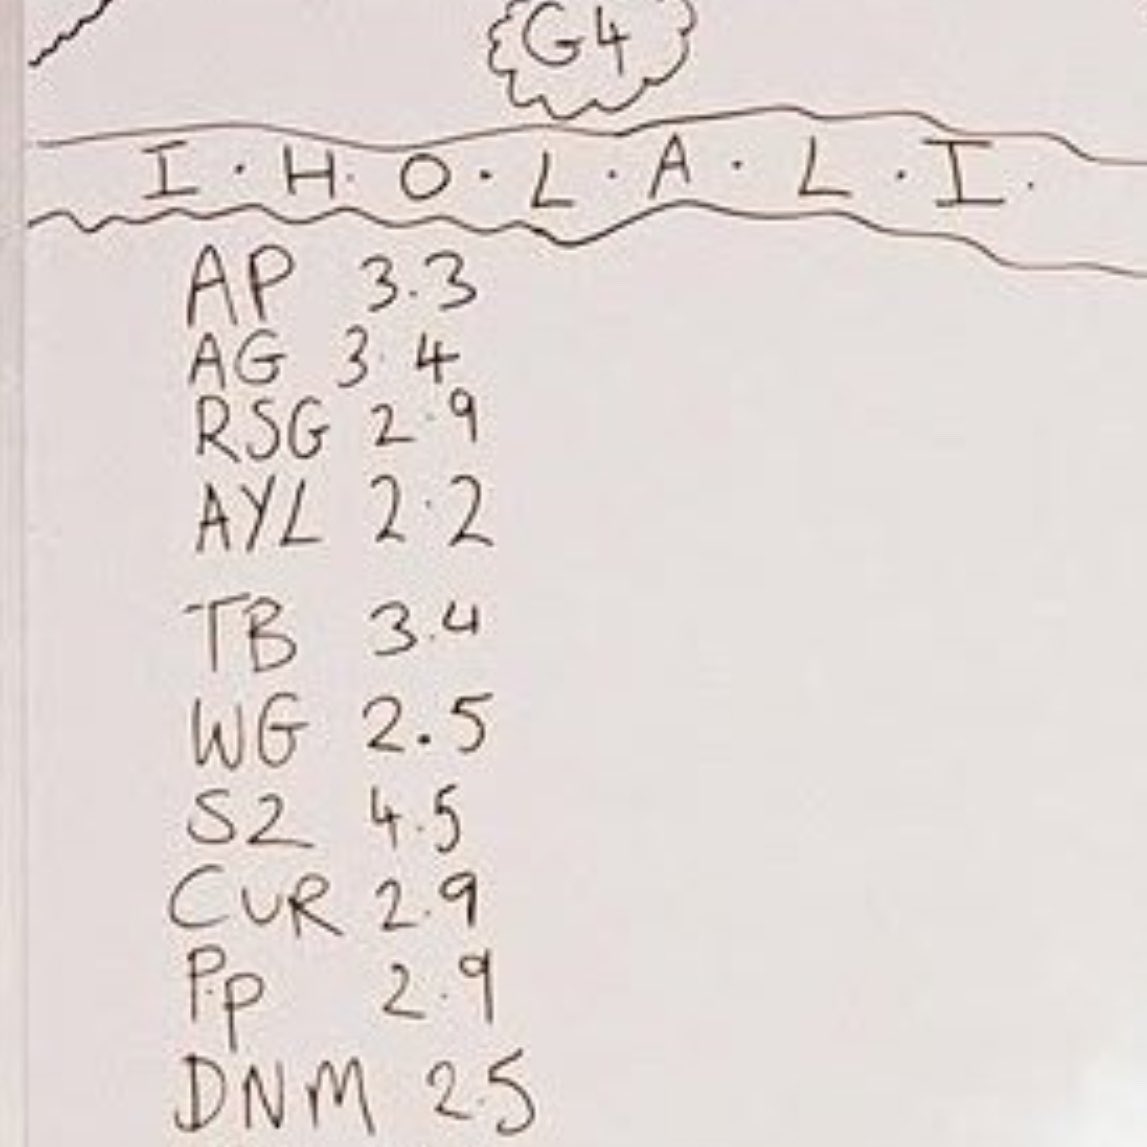 G4
I.H.O.L.A.L.I.
AP 3.3
AG 3.4
RSG 2.9
AYL 2.2
TB 3.4
WG 2.5
S2 4.5
CUR 2.9
P.p 2.9
DNM 2.5